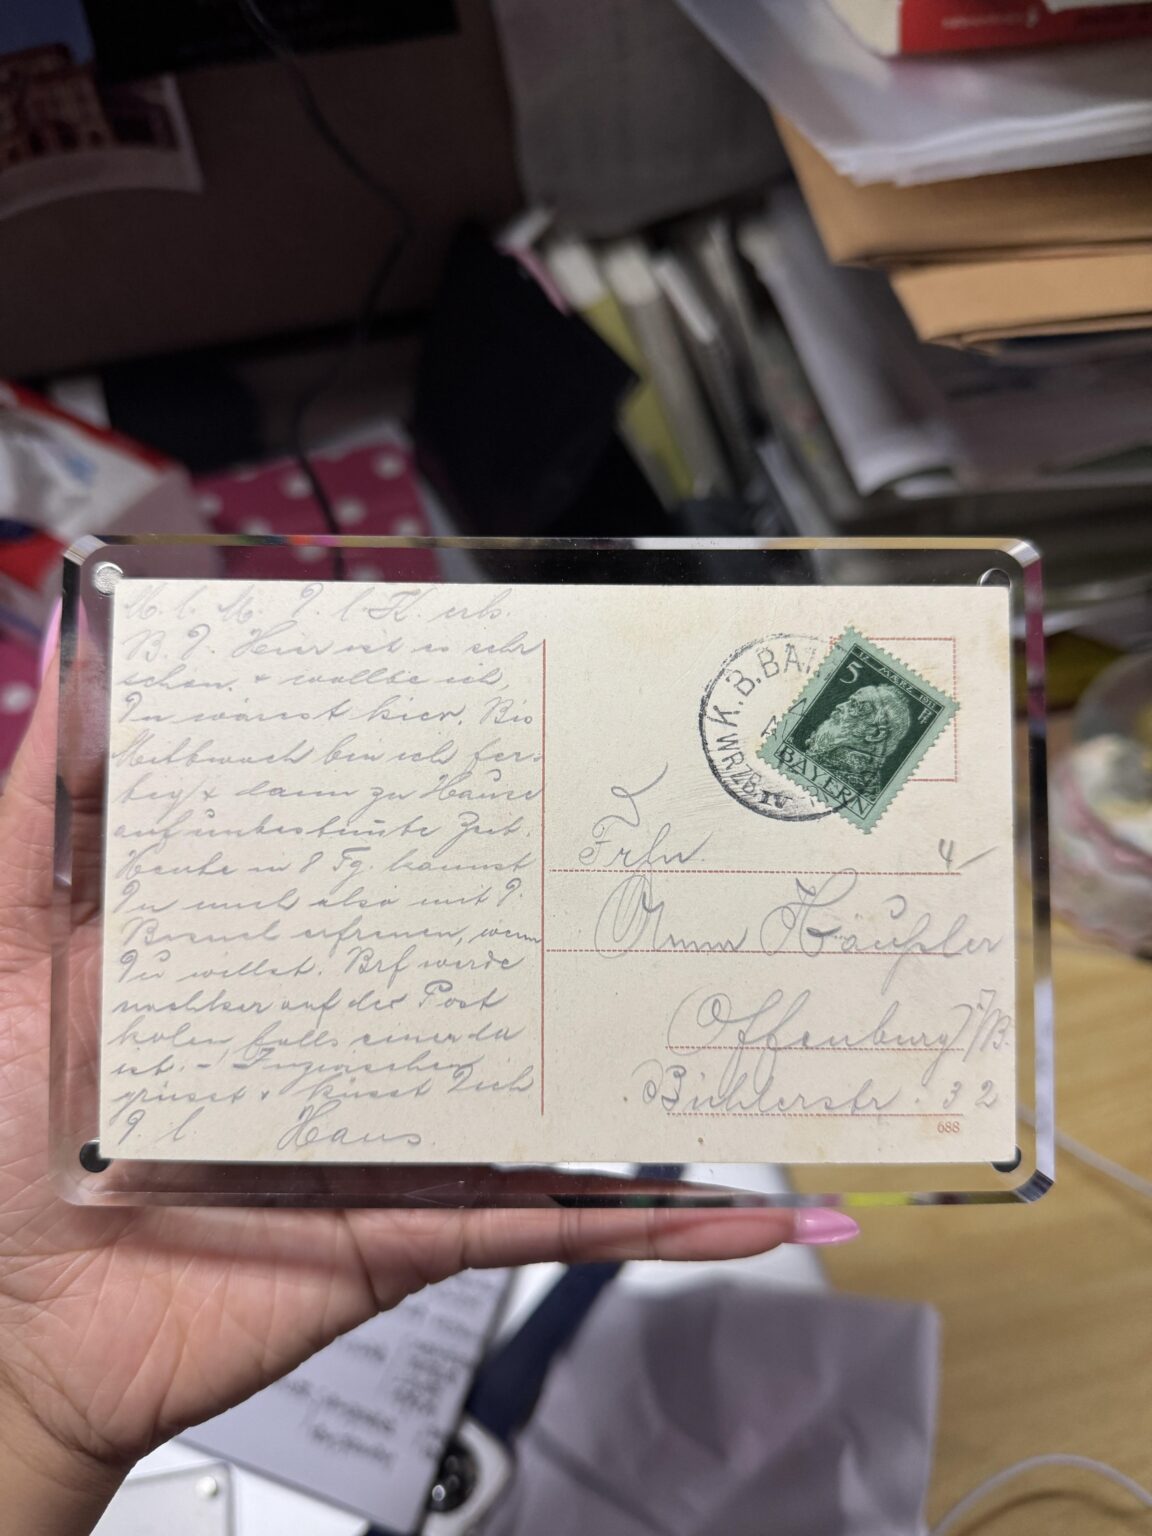 M. l. M. D. l. K. erh.
B. D. Hier ist es sehr
schön. + wollte ich,
Du wärest hier. Bis
Mittwoch bin ich fer-
tig + dann zu Hause
auf unbestimmte Zeit.
Heute in 8 Tg. kannst
Du mich also mit D.
Besuch erfreuen, wenn
Du willst. Brf werde
nachher auf der Post
holen falls einer da
ist. - Inzwischen
grüsst + küsst Dich
D. l. Hans.
K.B.BA
WÜRZB
IV
5
12. MÄRZ 1911
BAYERN
Frln.
4
Anna Häußler
Offenburg i/B.
Bühlerstr. 32
688